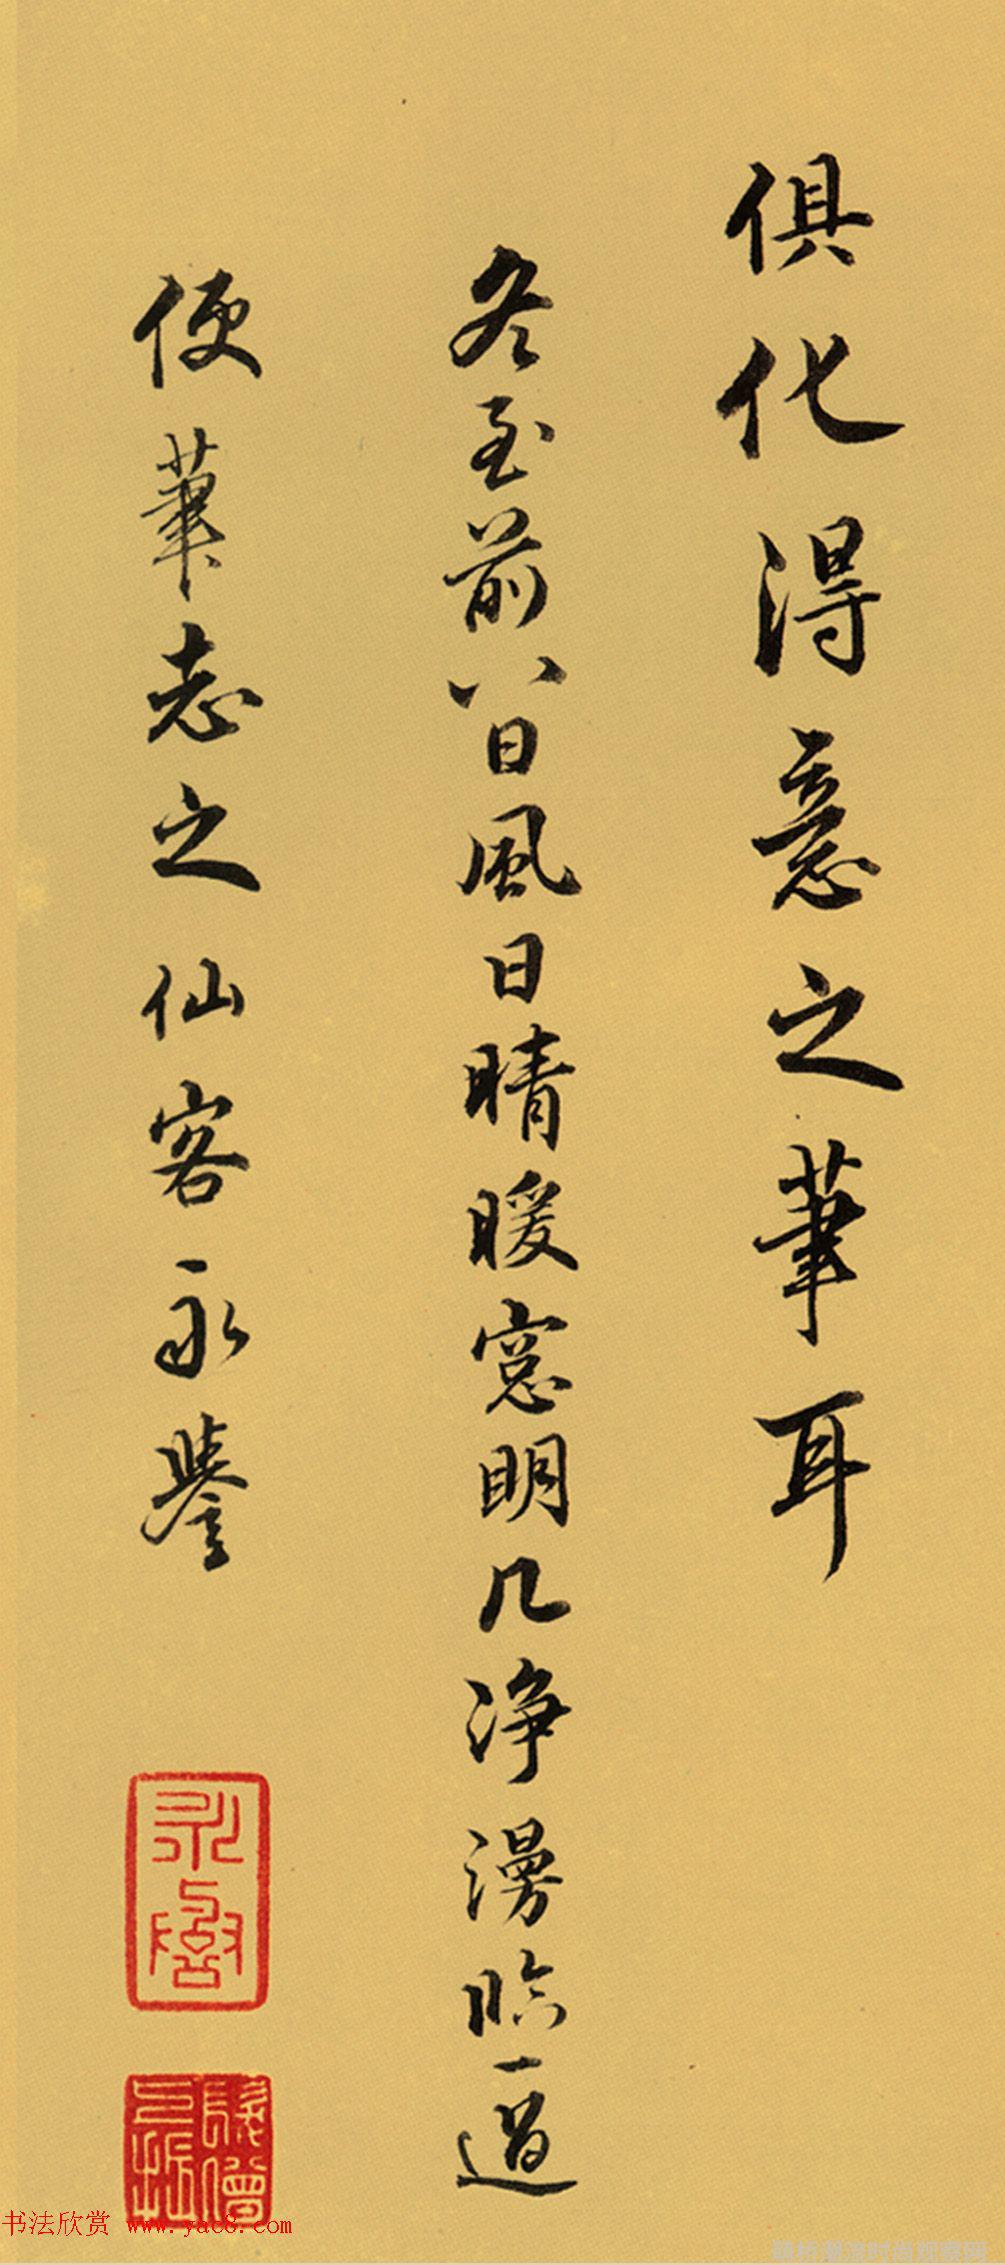 俱化得意之筆耳
冬至前八日風日晴暖窓明几淨漫臨一過
便筆志之仙客永譽
永譽
书法欣赏 www.yac8.com